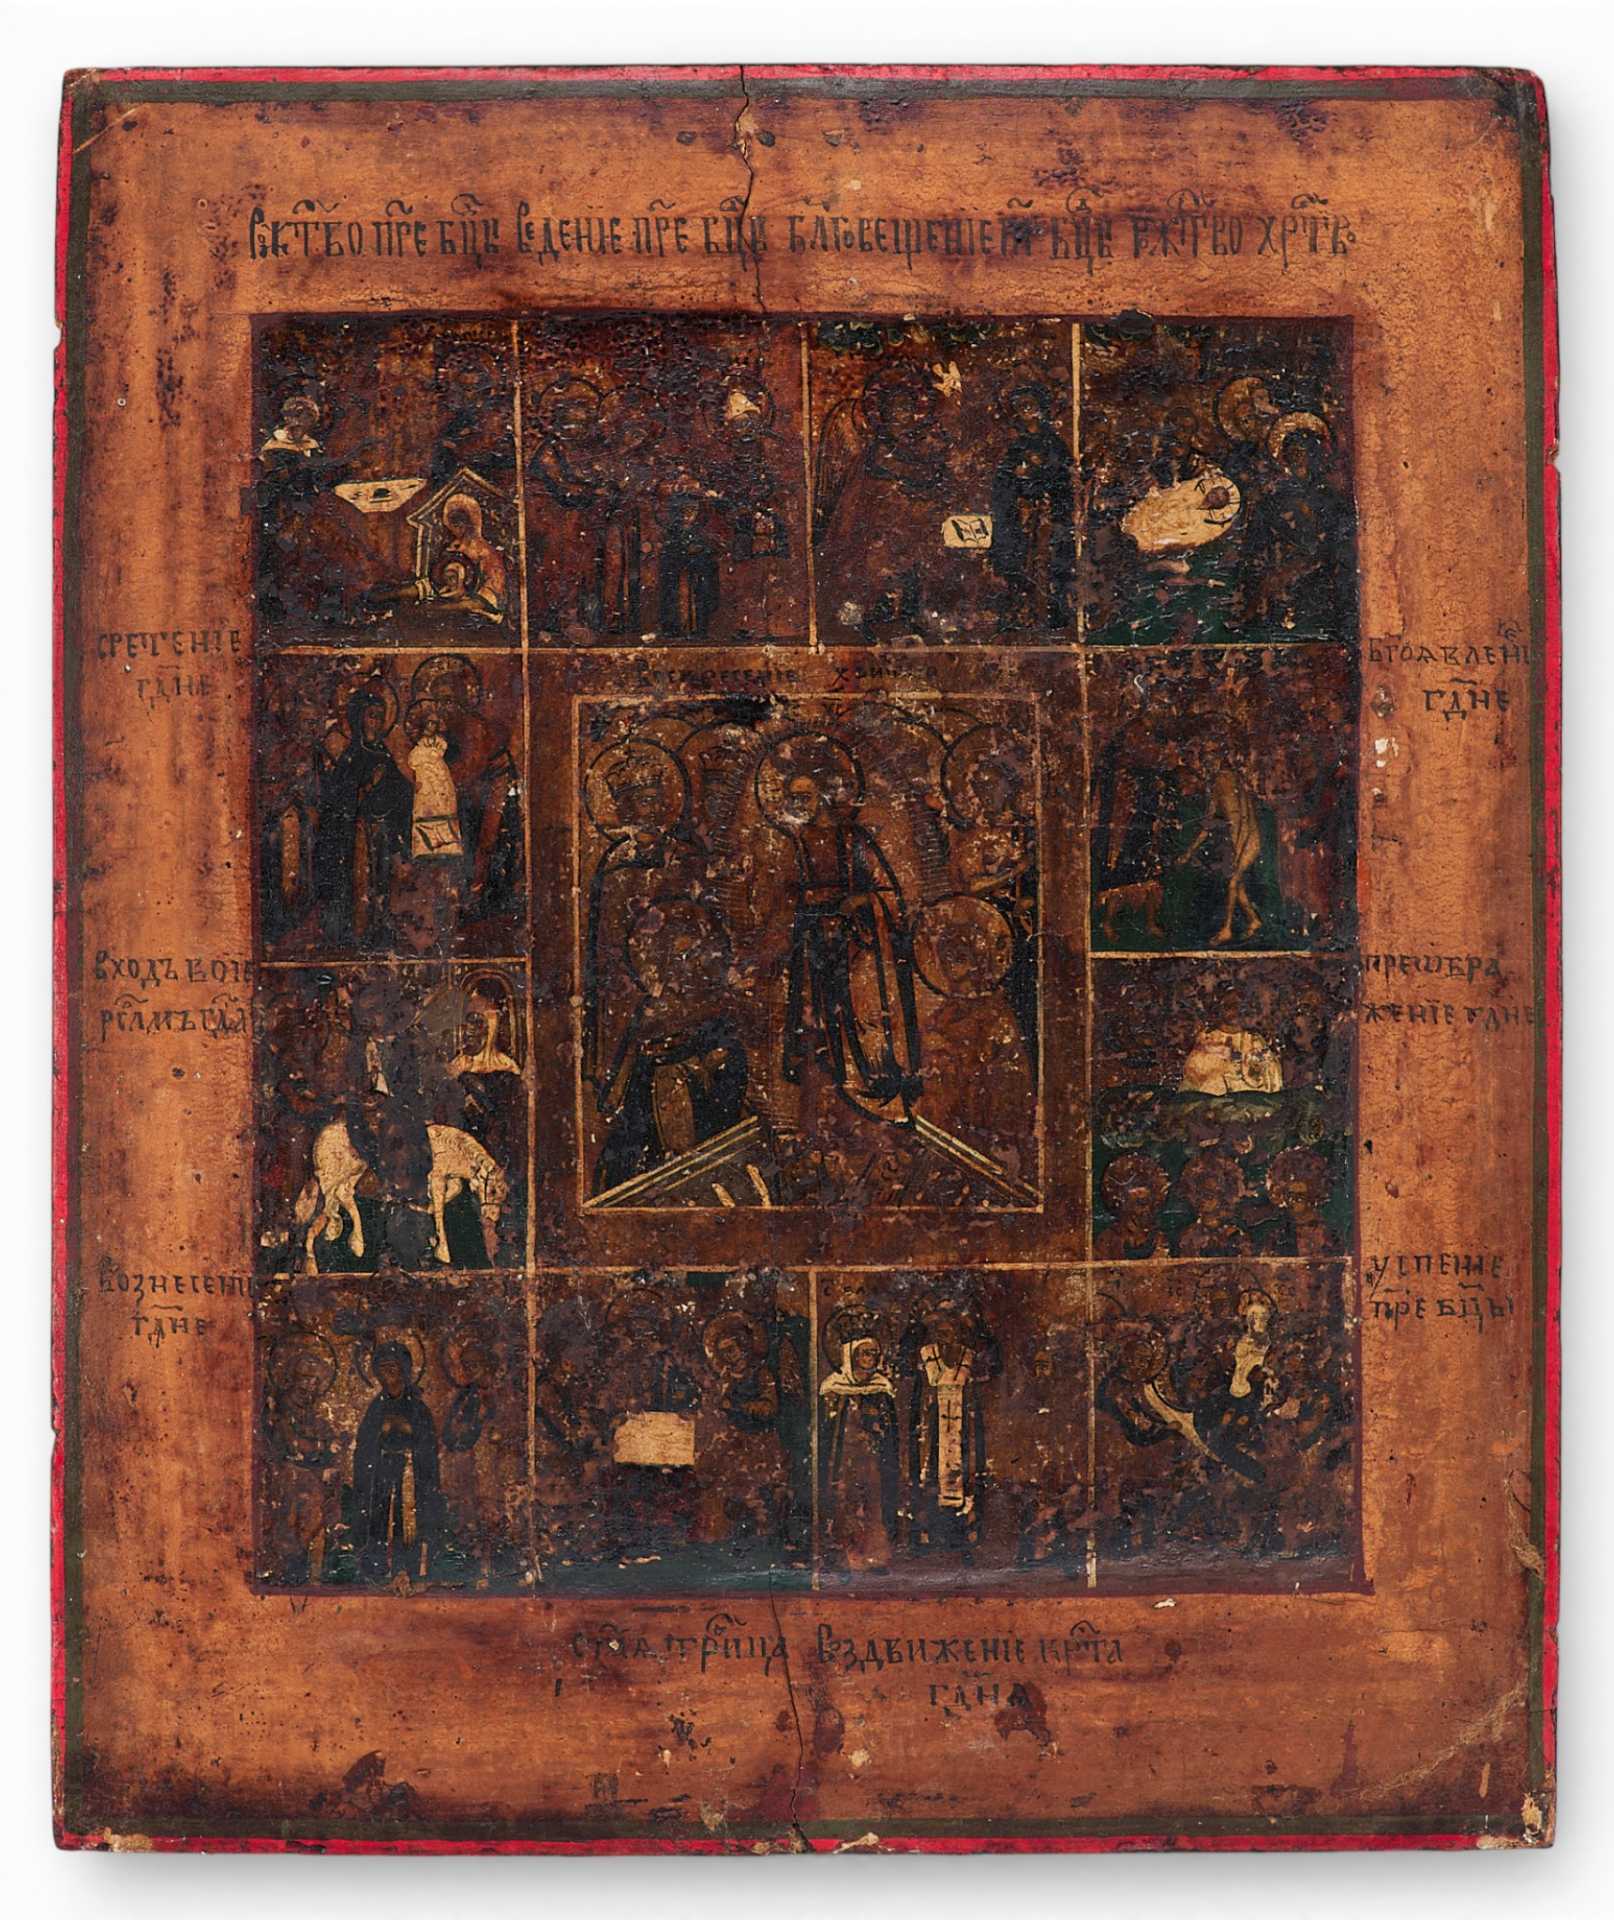 Ржⷭ҇тво прⷭ҇е бцⷣы введенїе прⷭ҇е бцⷣы бл҃говещенїе прⷭ҇ бцⷣы ржтⷭ҇во хрⷭ҇тво
сретенїе
гдⷭ҇не
бгоѧвленї
гдⷭ҇не
воскресенїе
входъ во їе
рⷭ҇лмъ гдⷭ҇а
преѡбра
женїе гдне
вознесенї
гдⷭ҇не
успенїе
прⷭ҇е бцⷣы
ст҃аѧ трⷪ҇ица воздвиженїе крⷭ҇та
гдⷭ҇нѧ